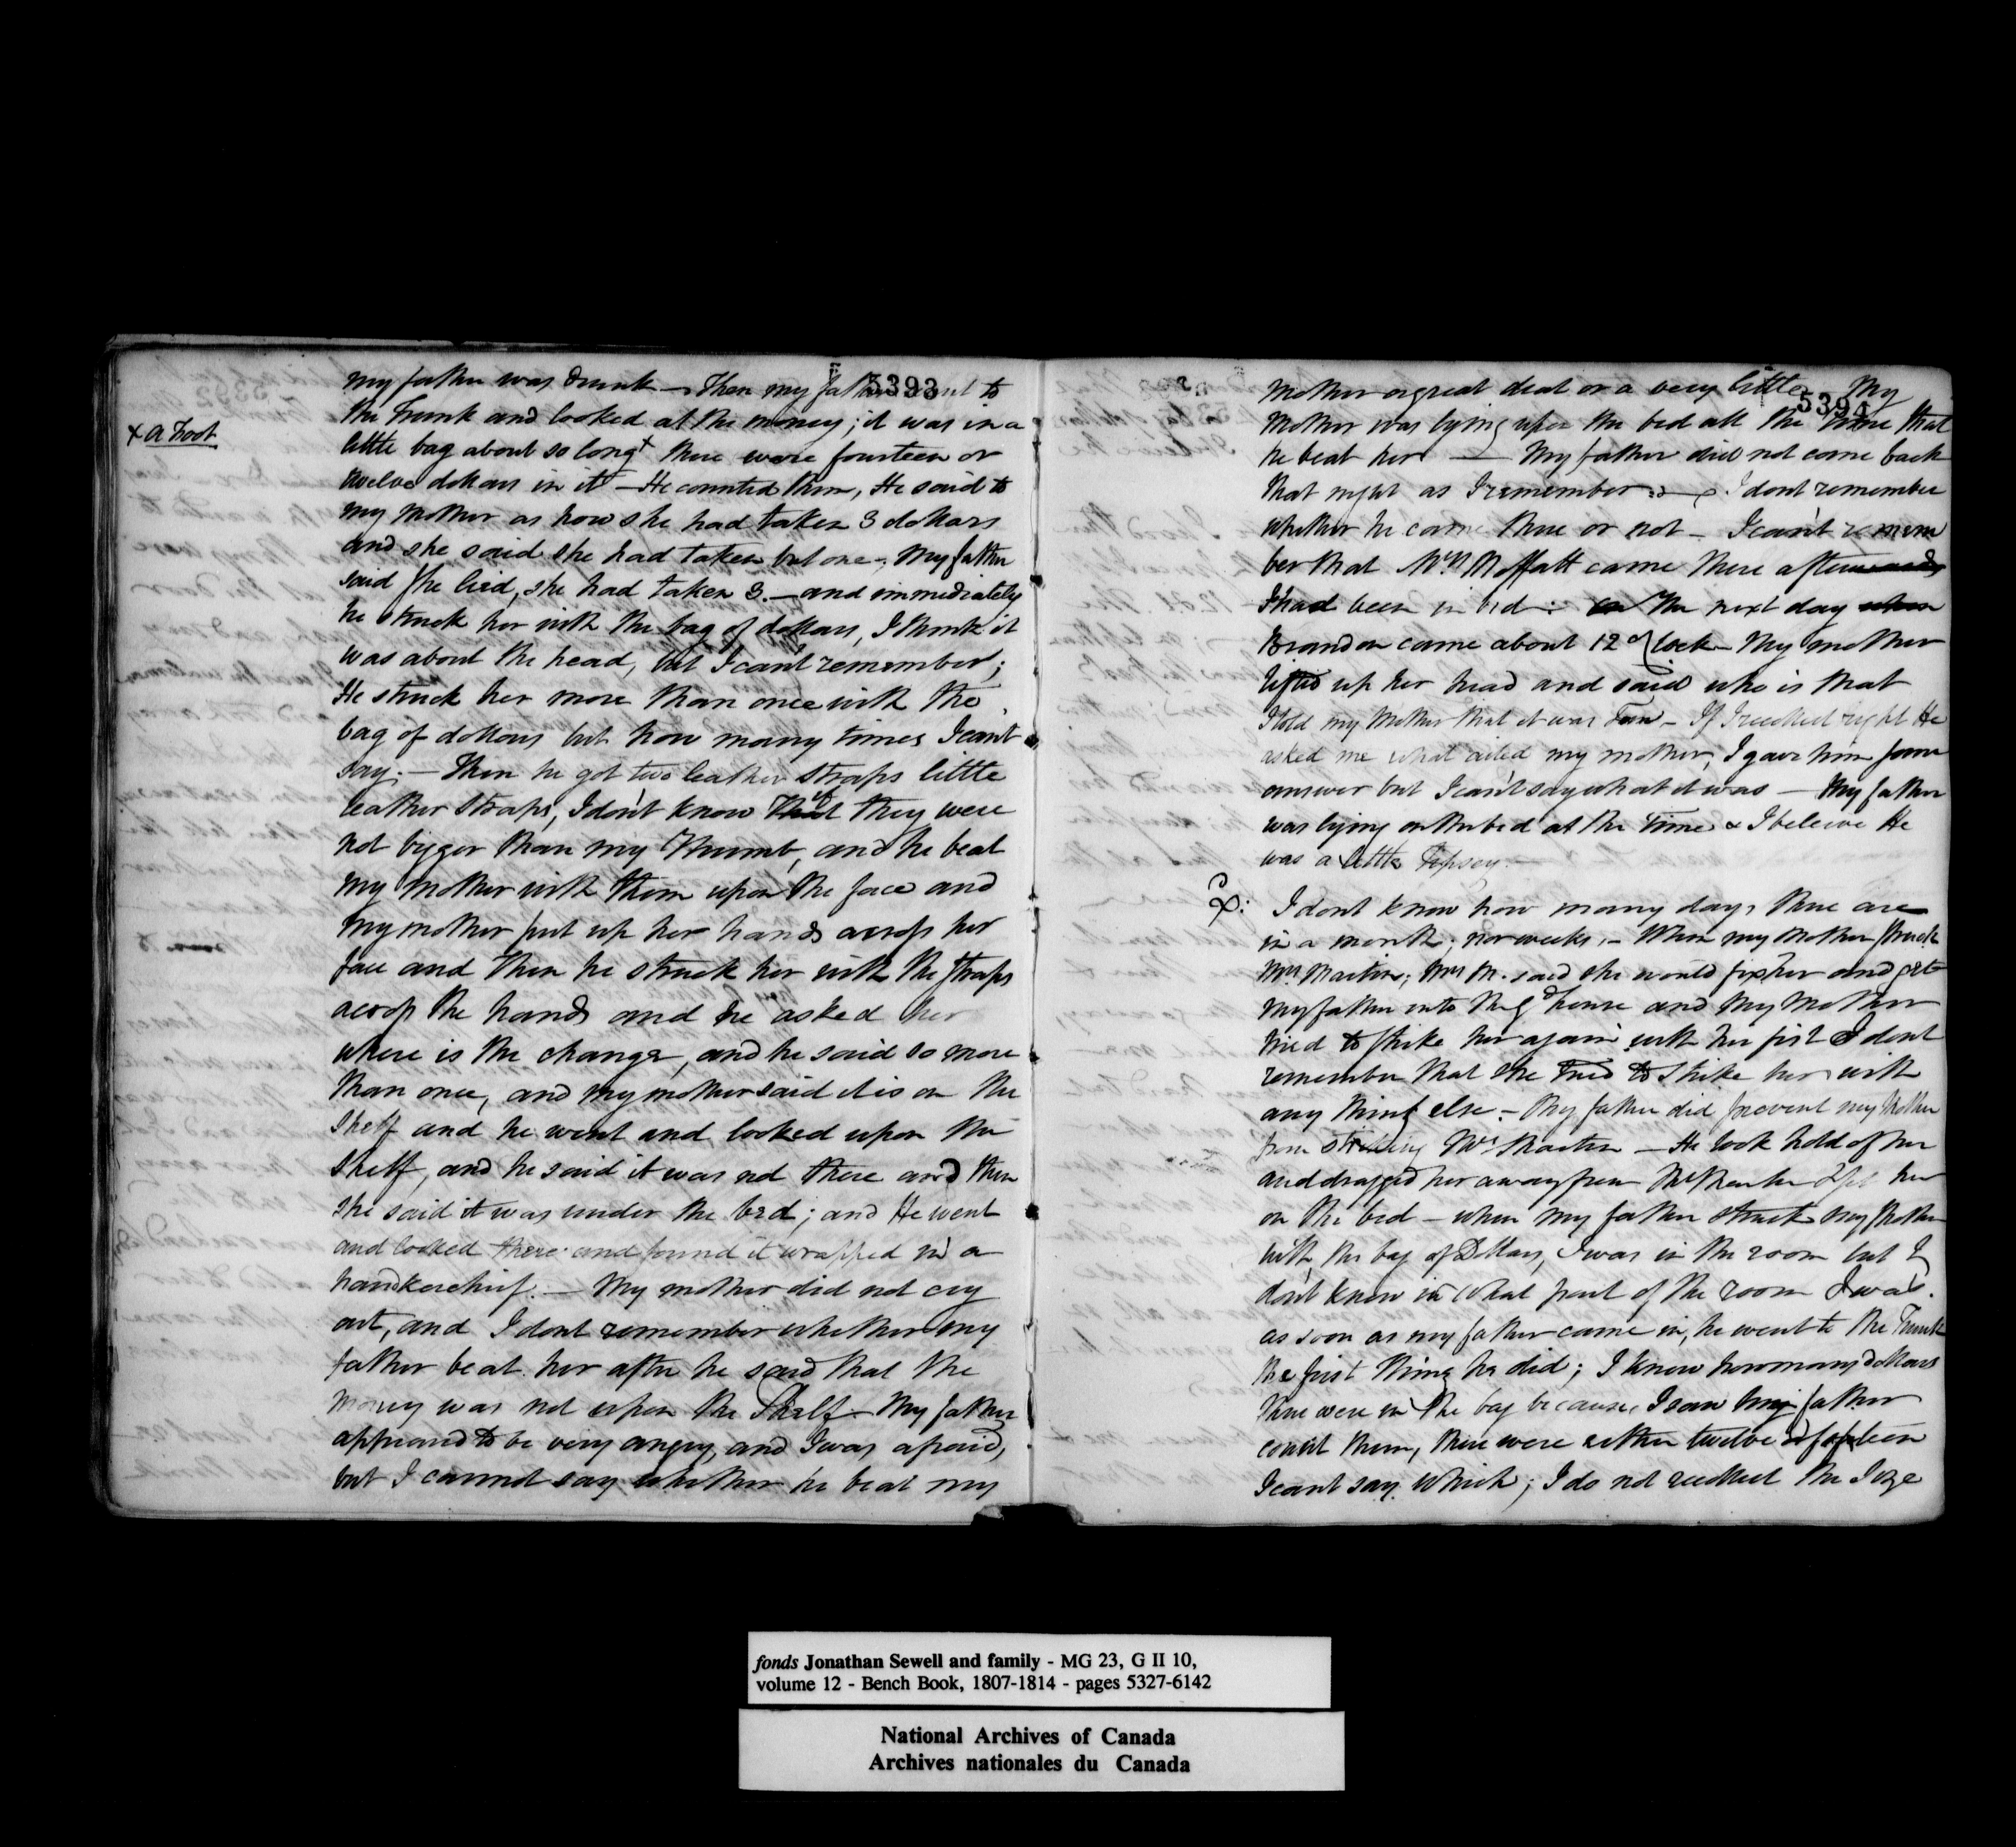 5393
my father was drunk – Then my father went to
the Trunk and looked at the money; it was in a
x a foot
little bag about so long x there were fourteen or
twelve dollars in it – He counted them, He said to
my mother as how she had taken 3 dollars
and she said she had taken but one – My father
said she lied, she had taken 3. – and immediately
he struck her with the bag of dollars, I think it
was about the head, but I can't remember;
He struck her more than once with the
bag of dollars but how many times I can't
say. – Then he got two leather straps little
leather straps, I don't know that they were
not bigger than my Thumb, and he beat
my mother with them upon the face and
my mother put up her hands across her
face and then he struck her with the straps
across the hands and he asked her
where is the change, and he said so more
than once, and my mother said it is on the
Shelf and he went and looked upon the
Shelf, and he said it was not there and then
she said it was under the bed; and He went
and looked there and found it wrapped in a
handkerchief. – My mother did not cry
out, and I dont remember whether my
father beat her after he said that the
money was not upon the Shelf – My father
appeared to be very angry, and I was afraid,
but I cannot say whether he beat my
5394
mother a great deal or a very little My
Mother was lying upon the bed all the time that
he beat her – My father did not come back
that night as I remember – I dont remember
whether he came there or not – I can't remem
ber that Mrs Moffatt came there afterwards
I had been in bed : The next day when
Brandon came about 12 o'Clock – My mother
lifted up her head and said who is that
I told my Mother that it was Tom – If I recollect right He
asked me what ailed my mother, I gave him some
answer but I can't say what it was – My father
was lying on the bed at the time & I beleive He
was a little Tipsey. –
I dont know how many days there are
in a month; nor weeks, – When my Mother struck
Mrs Martin; Mrs M. said she would fix her and get
my father into the Gd house and My Mother
tried to strike her again with her fist I dont
remember that she tried to strike her with
any thing else – My father did prevent my Mother
from striking Mrs Martin – He took hold of her
and dragged her away from Mrs Martin her
on the bed – when my father struck my Mother
with the bag of Dollars, I was in the room but I
don't know in what part of the room I was.
as soon as my father came in, he went to the Trunk
the first thing he did; I know how many dollars
there were in the bag because I saw my father
count them, there were either twelve or fourteen
I cant say which; I do not recollect the Size
fonds Jonathan Sewell and family - MG 23, G II 10,
volume 12 - Bench Book, 1807-1814 - pages 5327-6142
National Archives of Canada
Archives nationales du Canada